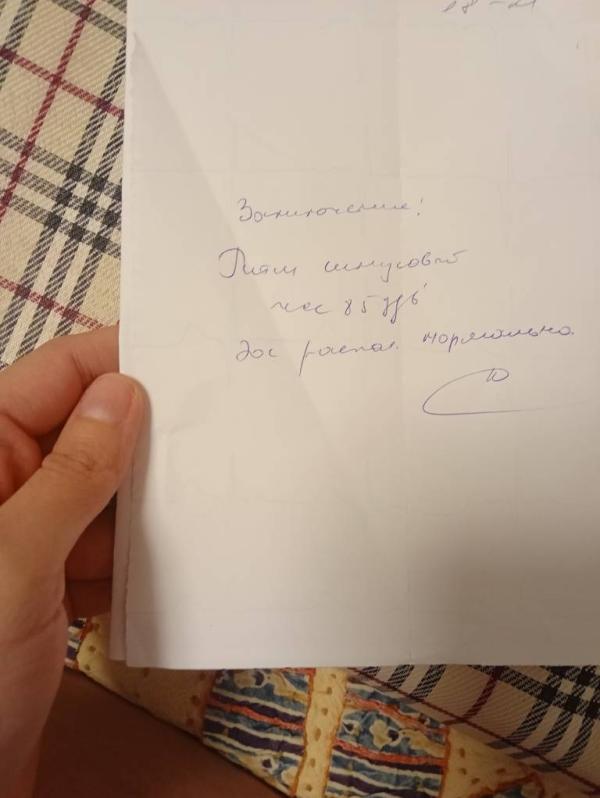 18-21
Заключение!
Ритм синусовый
чсс 85 уд/'
эос распол. нормально